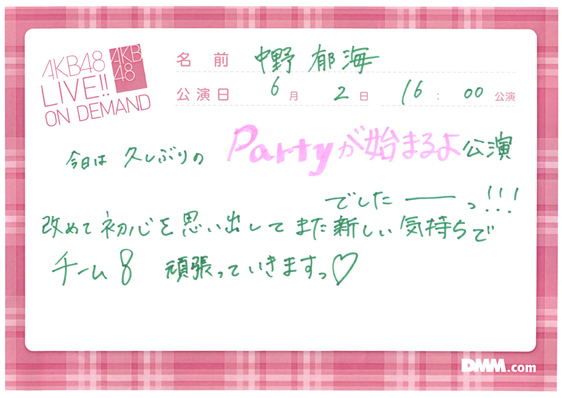 AKB48
LIVE!!
ON DEMAND
AKB
48
名前 中野郁海
公演日 6月2日 16:00公演
今日は久しぶりの Partyが始まるよ公演
でしたーっ!!!
改めて初心を思い出してまた新しい気持ちで
チーム8 頑張っていきますっ♡
DMM.com